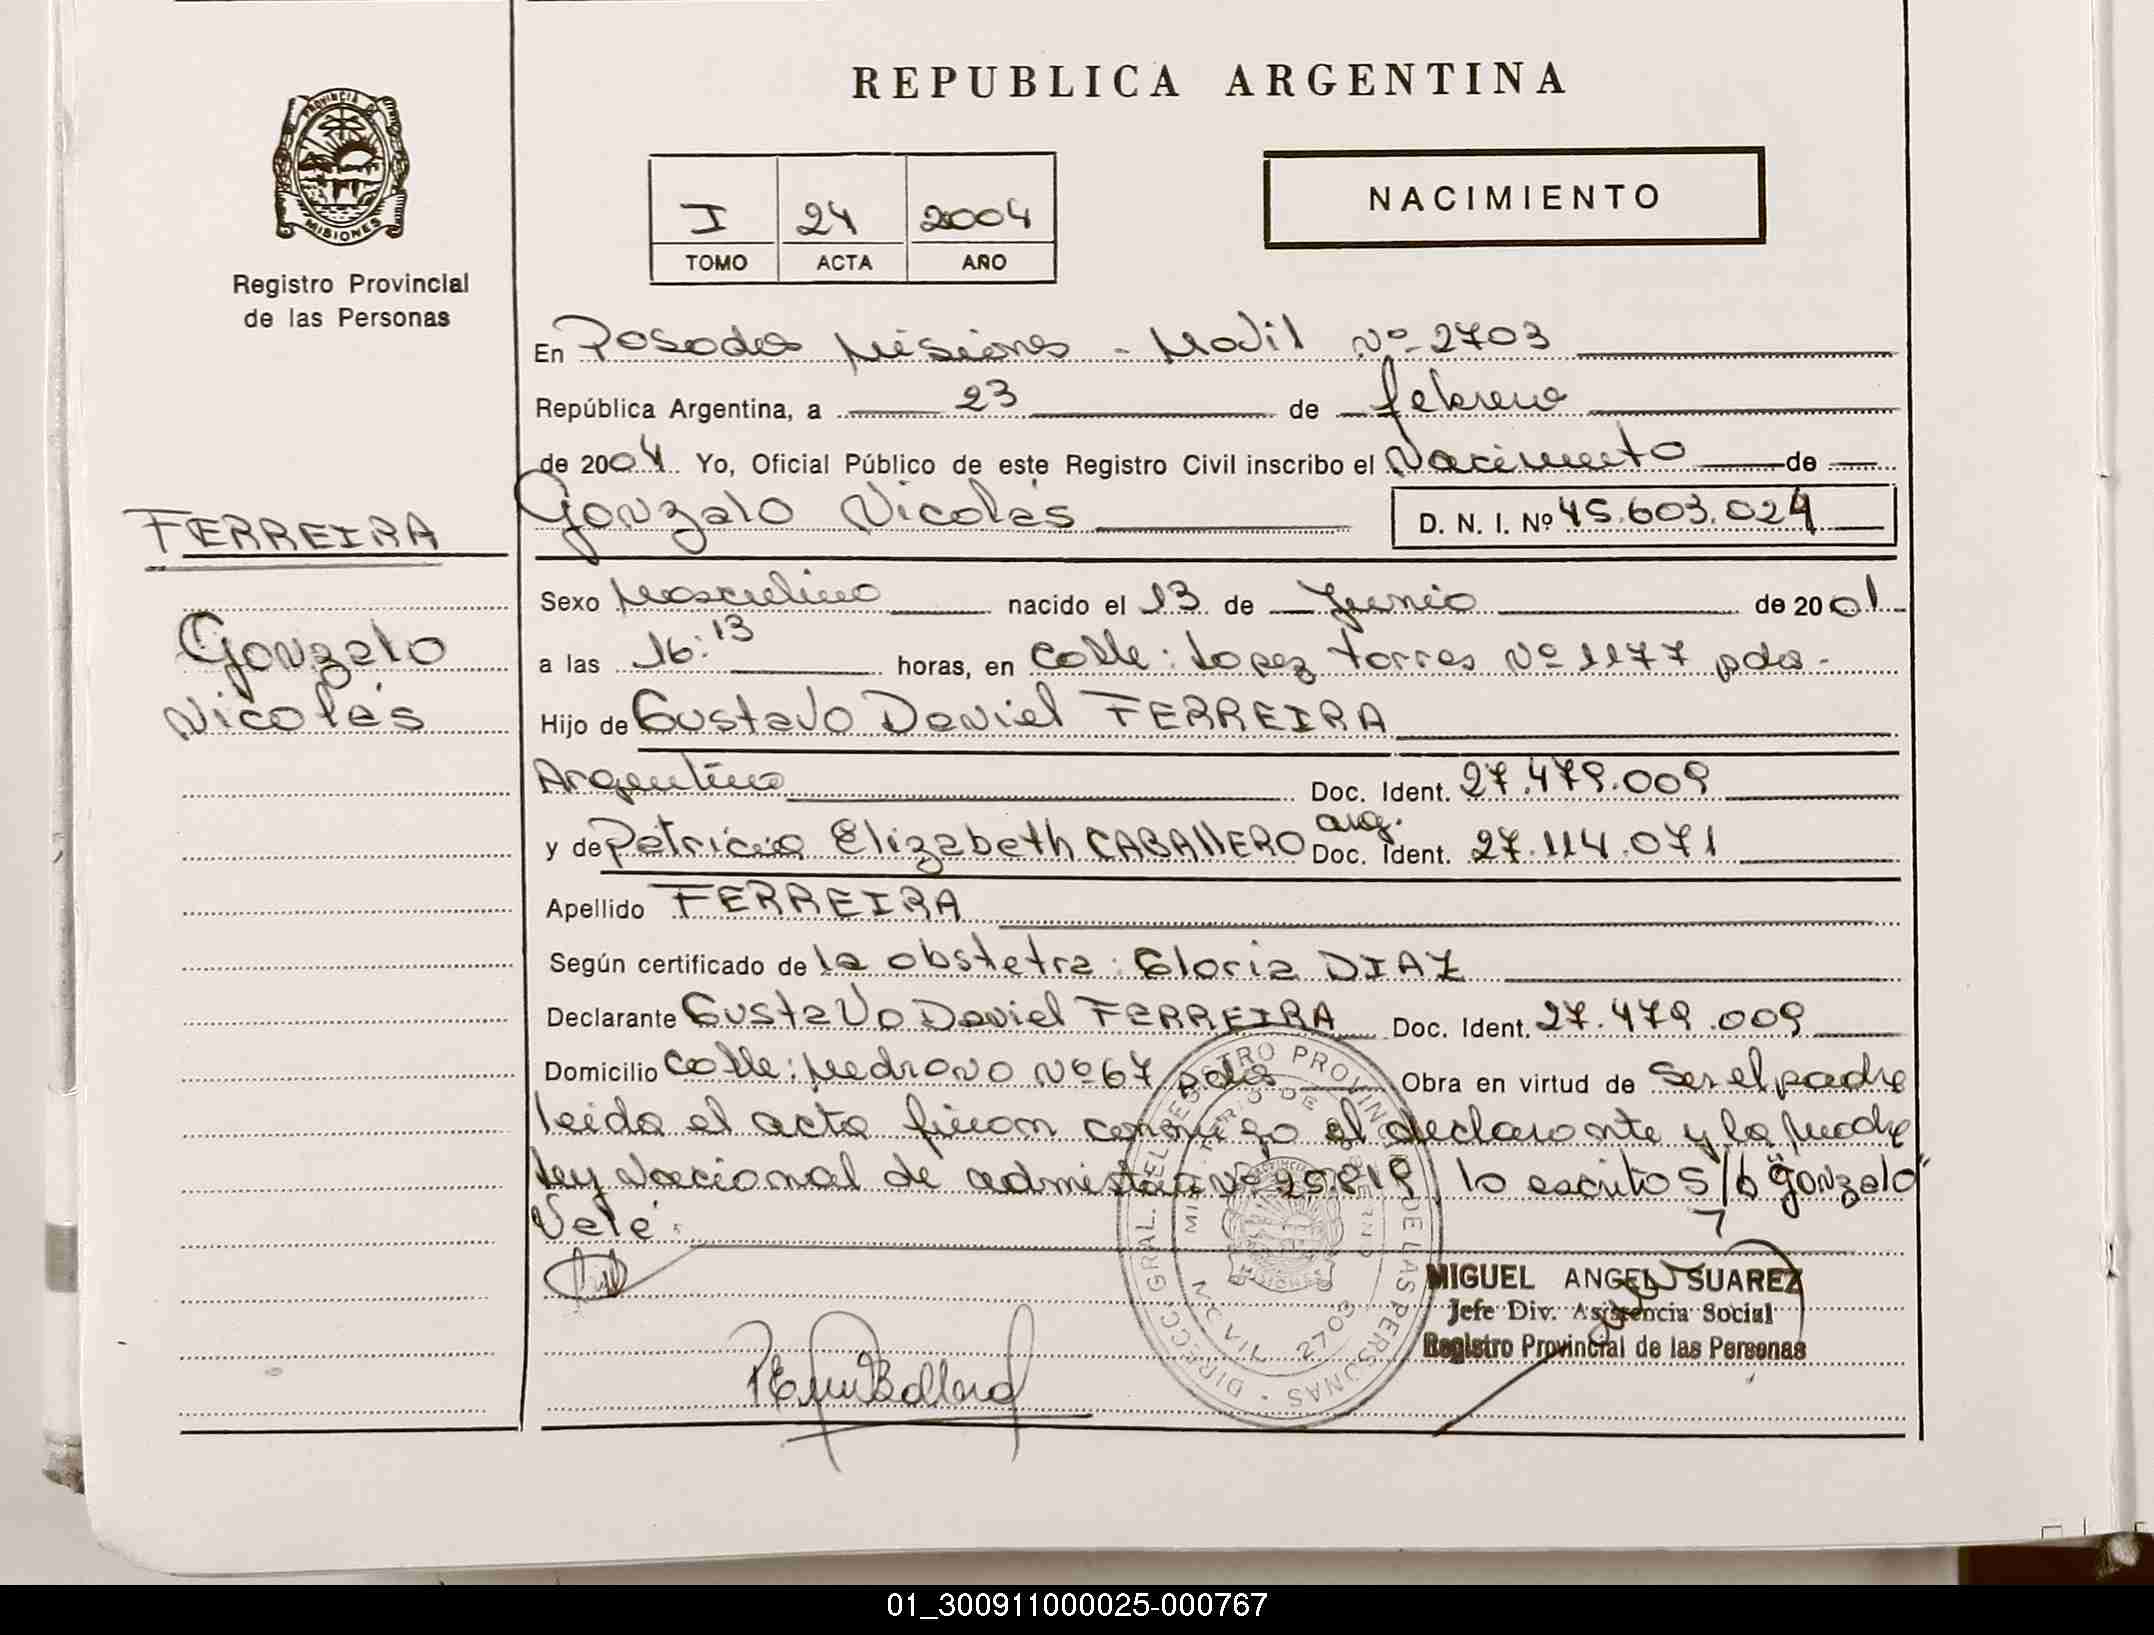 REPUBLICA ARGENTINA
PROVINCIA DE
MISIONES
Registro Provincial
de las Personas
I 24 2004
TOMO ACTA AÑO
NACIMIENTO
En Posadas Misiones - Movil Nº 2703
República Argentina, a 23 de febrero
de 2004 Yo, Oficial Público de este Registro Civil inscribo el Nacimiento de
Gonzalo Nicolás D. N. I. Nº 45.603.024
FERREIRA
Gonzalo
Nicolás
Sexo Masculino nacido el 13 de Junio de 2001
a las 16:13 horas, en Calle: Lopez Torres Nº 1177 pdas -
Hijo de Gustavo Daniel FERREIRA
Argentino Doc. Ident. 27.479.009
y de Patricia Elizabeth CABAllERO arg. Doc. Ident. 27.114.071
Apellido FERREIRA
Según certificado de la obstetra: Gloria DIAZ
Declarante Gustavo Daniel FERREIRA Doc. Ident. 27.479.009
Domicilio Calle: Medrano Nº 67 pdas Obra en virtud de Ser el padre
leida el acta firman conmigo el declarante y la madre
ley Nacional de admistia Nº 25.819, lo escrito S/b "Gonzalo"
Vale.
DIRECC. GRAL. DEL REGISTRO PROVINCIAL DE LAS PERSONAS
MINISTERIO DE GOBIERNO
MOVIL 2703
MIGUEL ANGEL SUAREZ
Jefe Div. Asistencia Social
Registro Provincial de las Personas
01_300911000025-000767